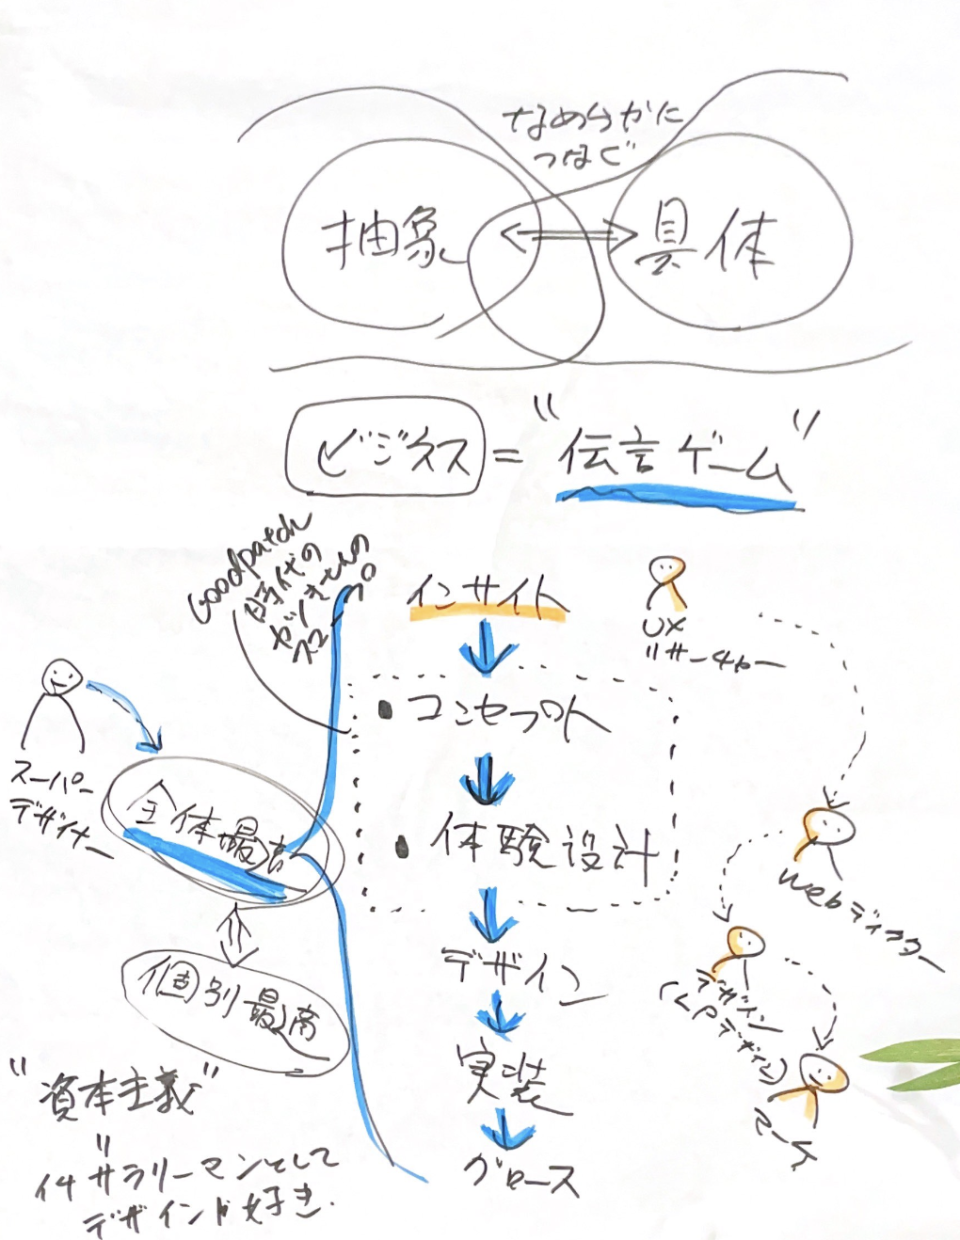 なめらかに
つなぐ
抽象
具体
ビジネス = "伝言ゲーム"
Goodpatch
時代の
インサイト
UX
リサーチャー
コンセプト
スーパー
デザイナー
全体最高
体験設計
webディレクター
デザイン
デザイン
(LPデザイン)
個別最高
実装
マーケ
"資本主義"
〃
サラリーマンとして
デザインが好き.
グロース